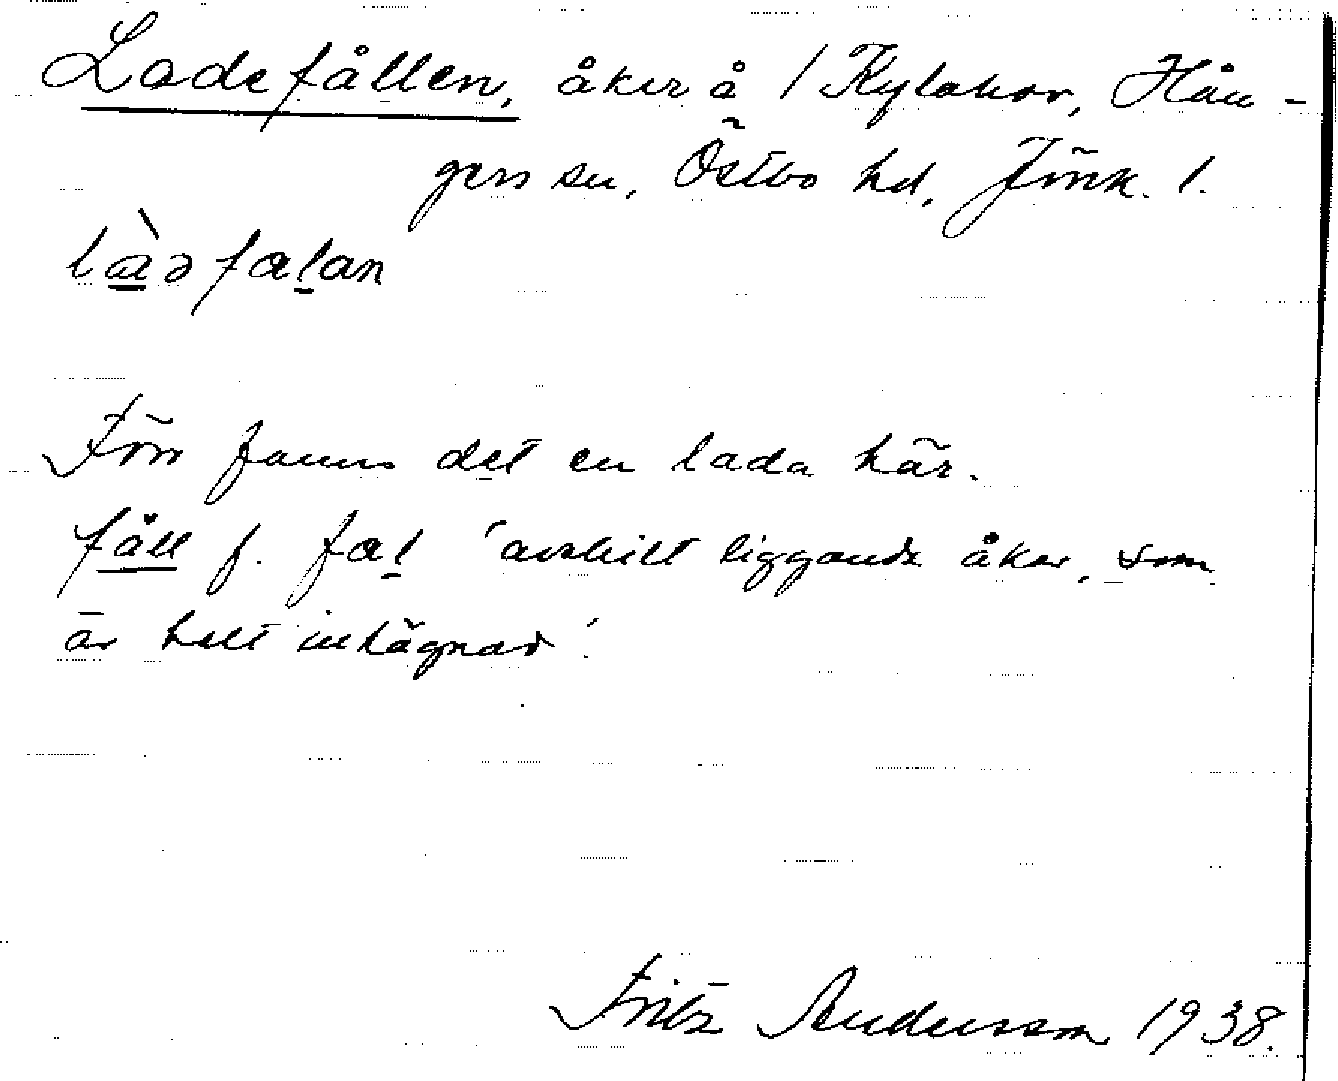 Ladefållen, åker å 1 Kylahov, Hån-
gers sn, Östbo hd, Jönk. l.
làdfalan
Förr fanns det en lada här.
fåll f. fal 'avskilt liggande åker, som
är helt inhägnad'
Fritz Andersson 1938.